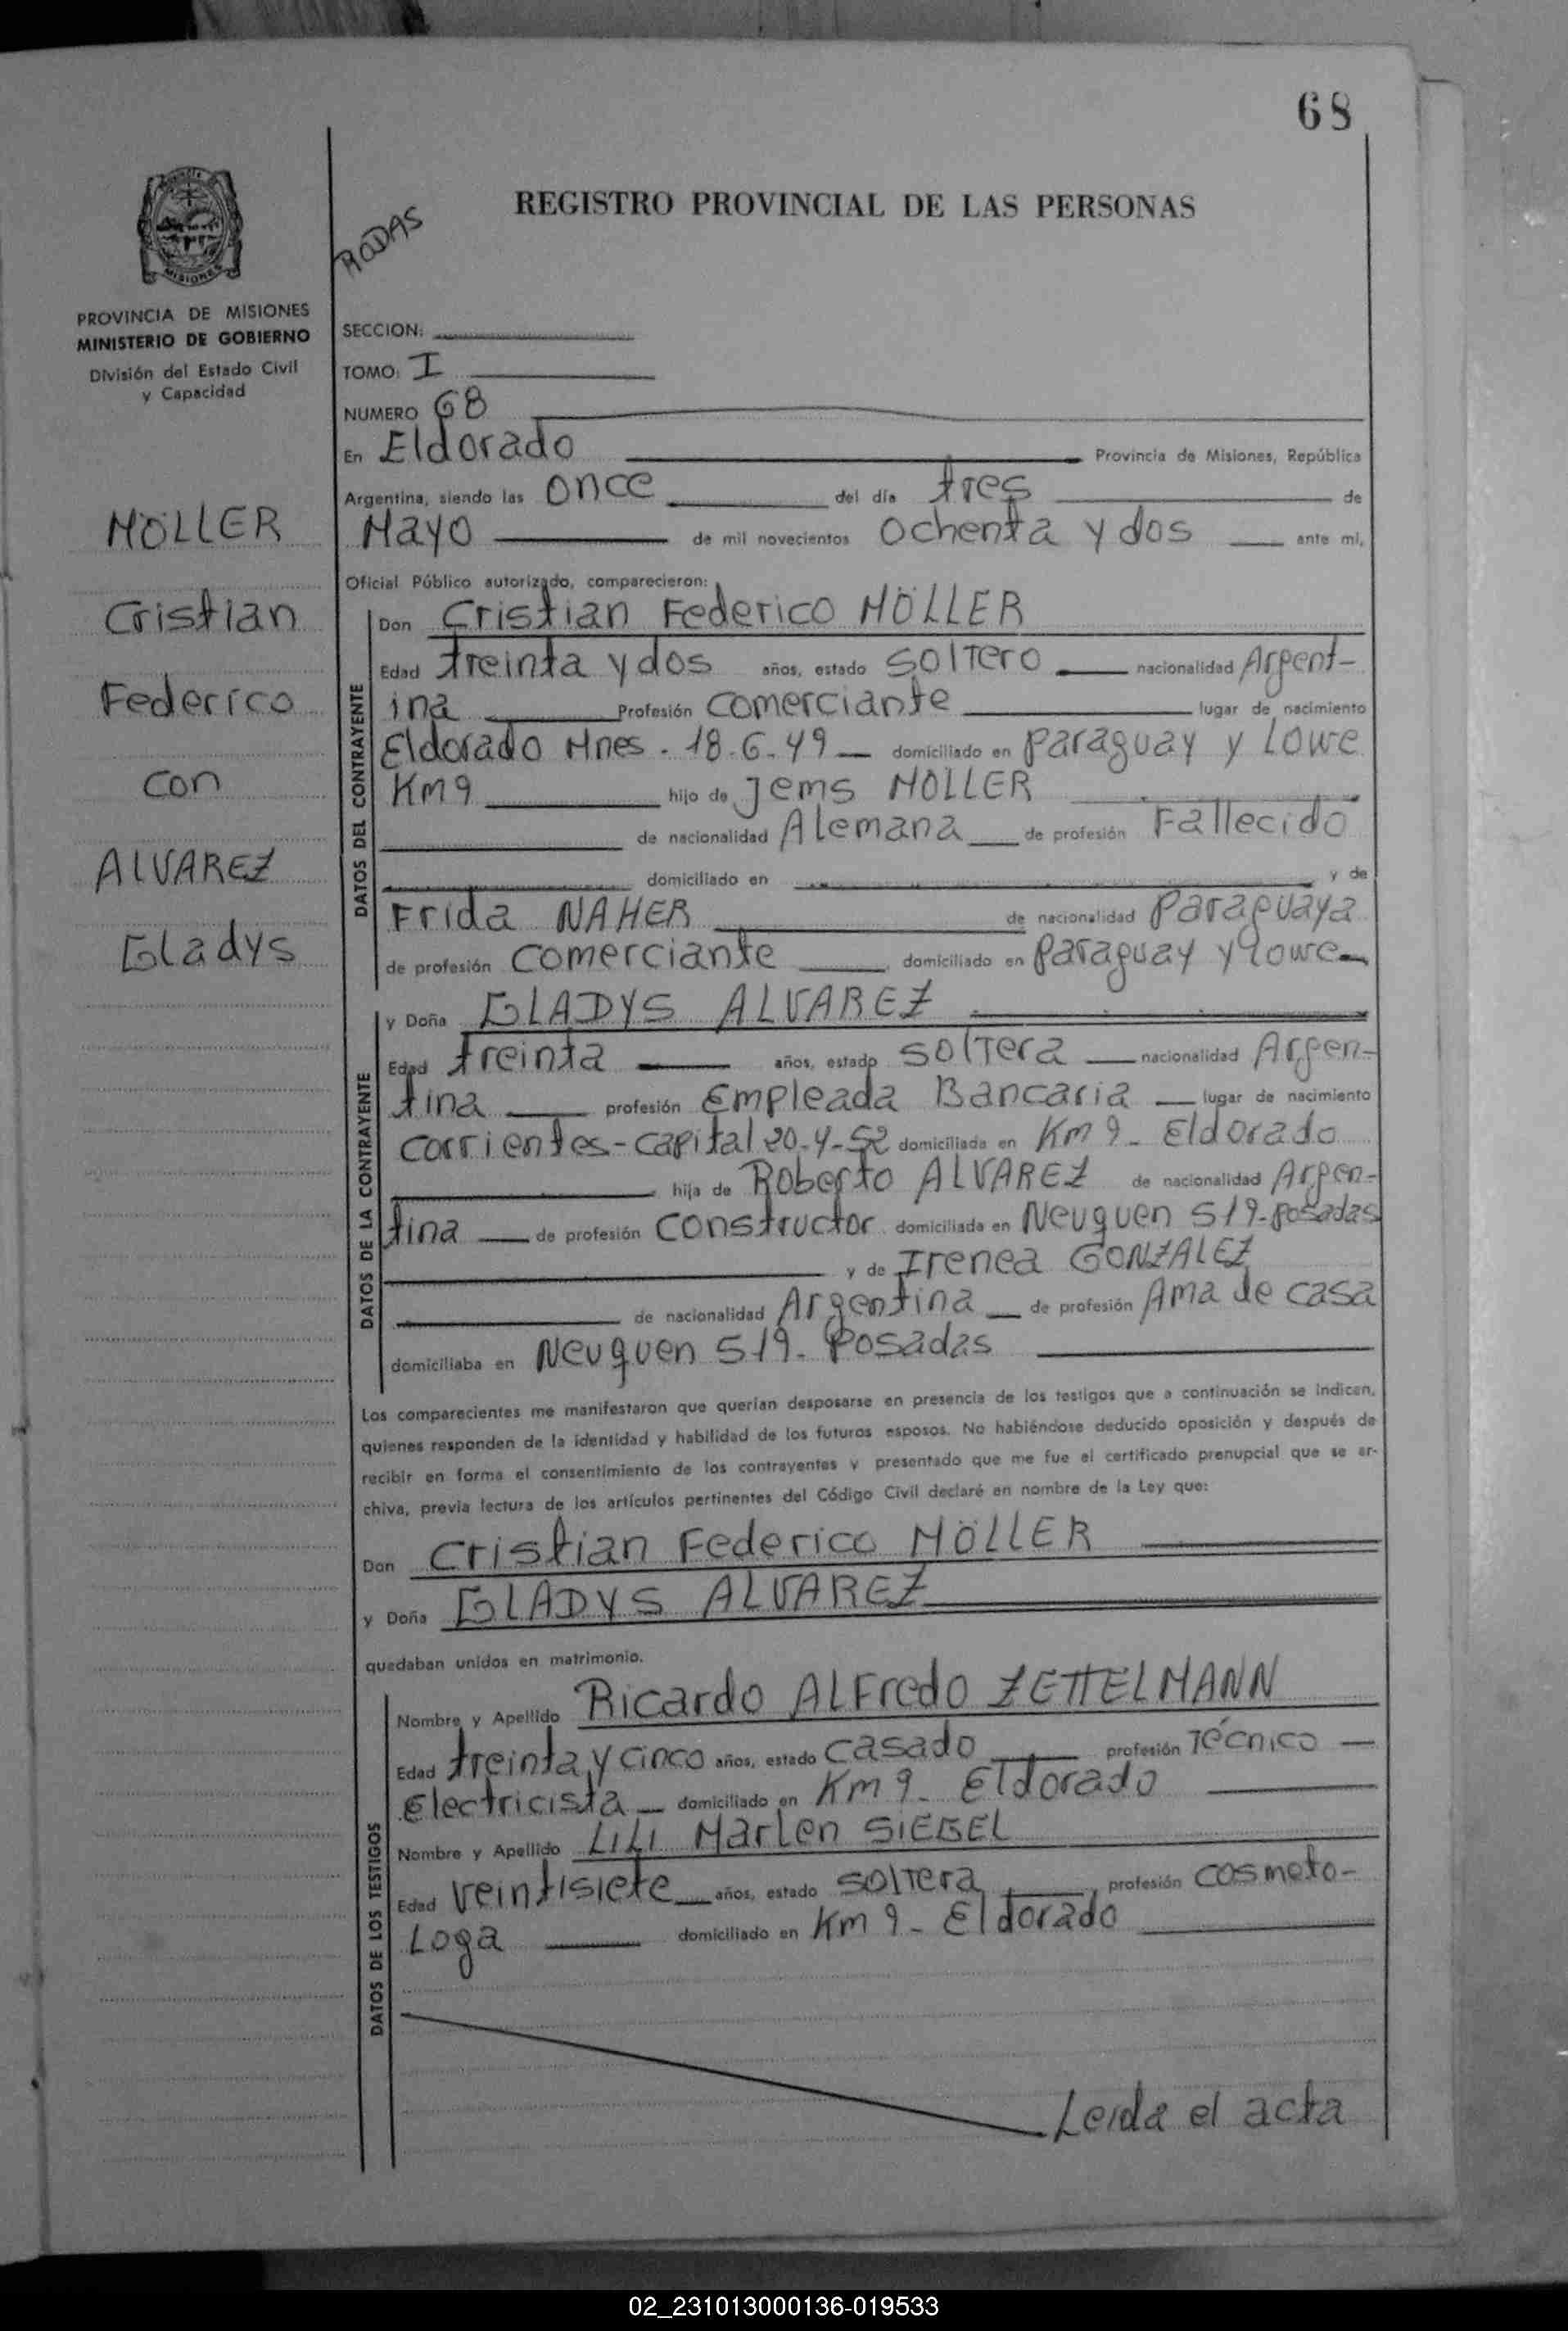 68
REGISTRO PROVINCIAL DE LAS PERSONAS
RODAS
MISIONES
PROVINCIA DE MISIONES
MINISTERIO DE GOBIERNO
División del Estado Civil
y Capacidad
SECCION:
TOMO: I
NUMERO 68
En Eldorado Provincia de Misiones, República
Argentina, siendo las once del día tres de
Mayo de mil novecientos ochenta y dos ante mi,
Oficial Público autorizado, comparecieron:
MÖLLER
Cristian
Federico
con
ALVAREZ
Gladys
DATOS DEL CONTRAYENTE
Don Cristian Federico MÖLLER
Edad treinta y dos años, estado soltero nacionalidad Argent-
ina Profesión comerciante lugar de nacimiento
Eldorado Mnes. 18-6-49 domiciliado en Paraguay y Lowe
Km 9 hijo de Jems MOLLER
de nacionalidad Alemana de profesión Fallecido
domiciliado en y de
Frida NAHER de nacionalidad Paraguaya
de profesión comerciante domiciliado en Paraguay y Lowe
DATOS DE LA CONTRAYENTE
y Doña GLADYS ALVAREZ
Edad treinta años, estado soltera nacionalidad Argen-
tina profesión Empleada Bancaria lugar de nacimiento
Corrientes-capital 20-4-52 domiciliada en Km 9- Eldorado
hija de Roberto ALVAREZ de nacionalidad Argen-
tina de profesión constructor domiciliada en Neuquen 519-posadas
y de Irenea GONZALEZ
de nacionalidad Argentina de profesión Ama de casa
domiciliaba en Neuquen 519- Posadas
Los comparecientes me manifestaron que querían desposarse en presencia de los testigos que a continuación se indican,
quienes responden de la identidad y habilidad de los futuros esposos. No habiéndose deducido oposición y después de
recibir en forma el consentimiento de los contrayentes y presentado que me fue el certificado prenupcial que se ar-
chiva, previa lectura de los artículos pertinentes del Código Civil declaré en nombre de la Ley que:
Don Cristian Federico MÖLLER
y Doña GLADYS ALVAREZ
quedaban unidos en matrimonio.
DATOS DE LOS TESTIGOS
Nombre y Apellido Ricardo ALFredo ZETTELMANN
Edad treinta y cinco años, estado casado profesión Técnico
Electricista domiciliado en Km 9- Eldorado
Nombre y Apellido LILI Marlen SIEBEL
Edad veintisiete años, estado soltera profesión cosmeto-
Loga domiciliado en Km 9- Eldorado
Leida el acta
02_231013000136-019533